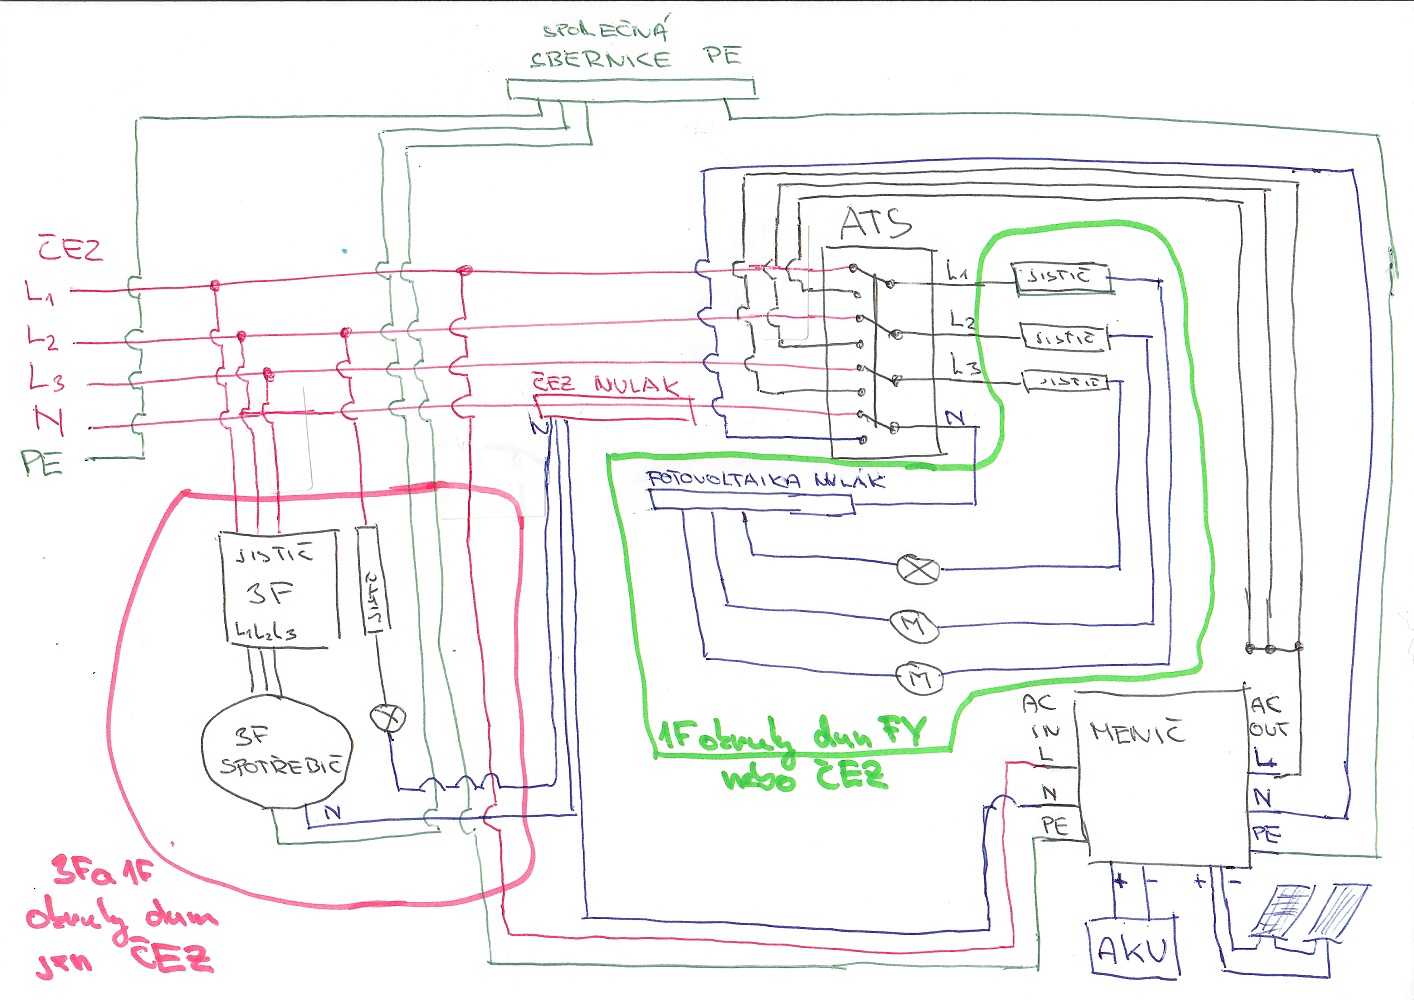 SPOLEČNÁ
SBERNICE PE
ČEZ
L1
L2
L3
N
PE
ATS
L1
L2
L3
N
JISTIČ
JISTIČ
JISTIČ
ČEZ NULAK
N
FOTOVOLTAIKA NULÁK
JISTIČ
3F
L1 L2 L3
JISTIČ
3F
SPOTŘEBIČ
N
M
M
1F okruhy dum FV
nebo ČEZ
3F a 1F
okruhy dum
jen ČEZ
AC
IN
L
N
PE
MENIČ
AC
OUT
L
N
PE
+ -
+ -
AKU